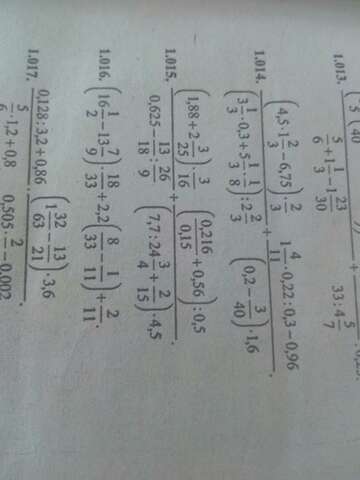 1.013.
5/6 + 1 1/3 − 1 23/30
33 : 4 5/7
1.014. (4,5 · 1 2/3 − 6,75) · 2/3 / ((3 1/3 · 0,3 + 5 1/3 · 1/8) : 2 2/3) + (1 4/11 · 0,22 : 0,3 − 0,96) / ((0,2 − 3/40) · 1,6).
1.015. (1,88 + 2 3/25) · 3/16 / (0,625 − 13/18 : 26/9) + (0,216/0,15 + 0,56) : 0,5 / ((7,7 : 24 3/4 + 2/15) · 4,5).
1.016. (16 1/2 − 13 7/9) · 18/33 + 2,2 · (8/33 − 1/11) + 2/11.
1.017. 0,128 : 3,2 + 0,86 / (5/6 · 1,2 + 0,8) · (1 32/63 − 13/21) · 3,6 / 0,505 · 2/ − 0,002